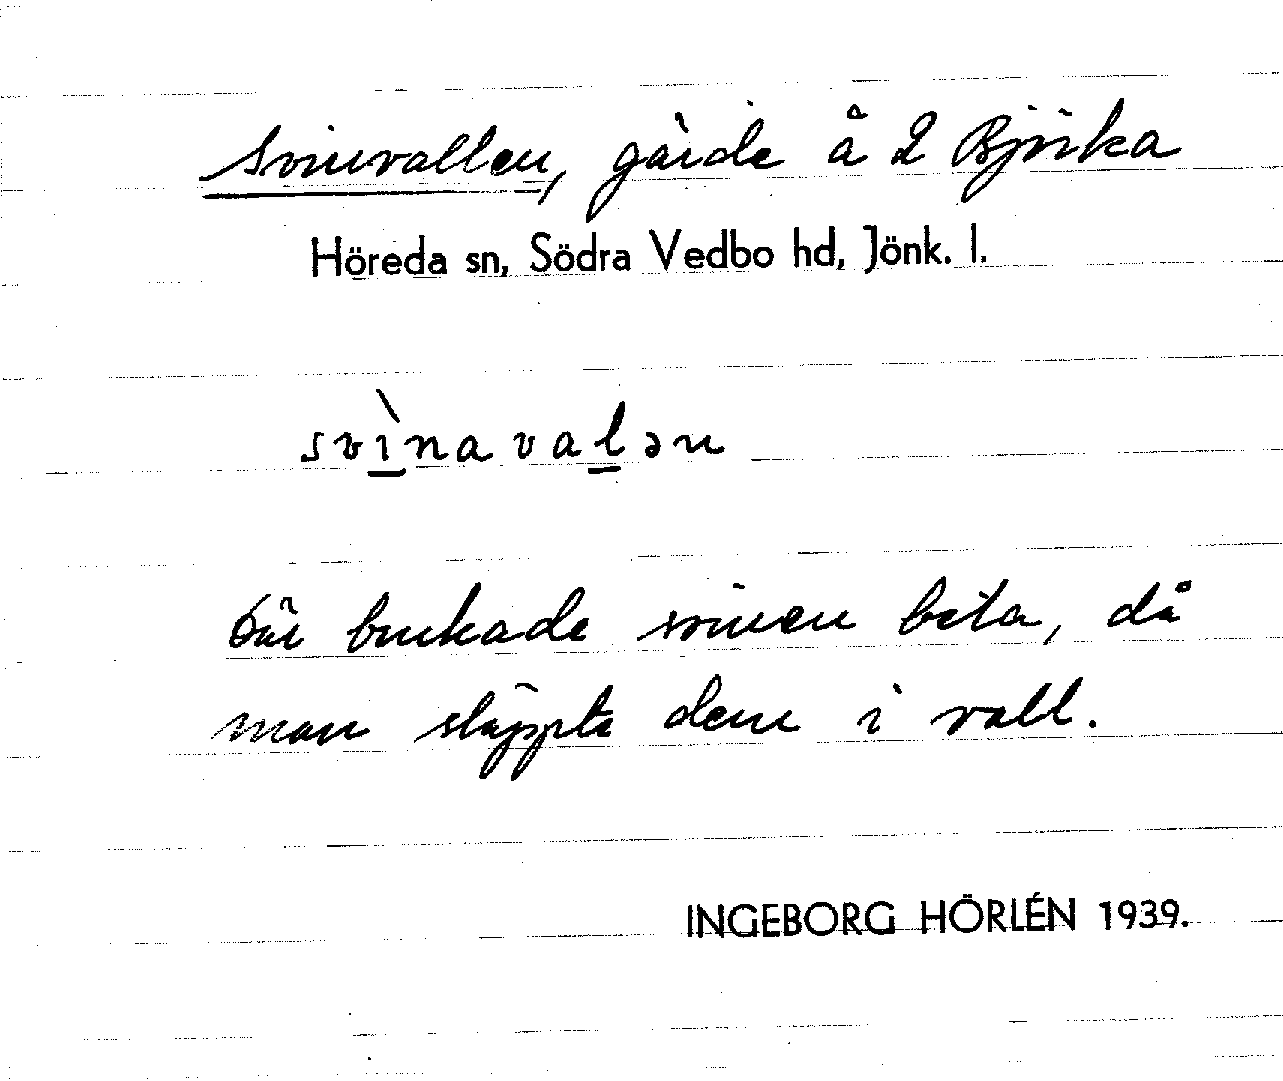 Svinvallen, gärde å 2 Björka
Höreda sn, Södra Vedbo hd, Jönk. l.
svìnavalən
Där brukade svinen beta, då
man släppte dem i vall.
INGEBORG HÖRLÉN 1939.